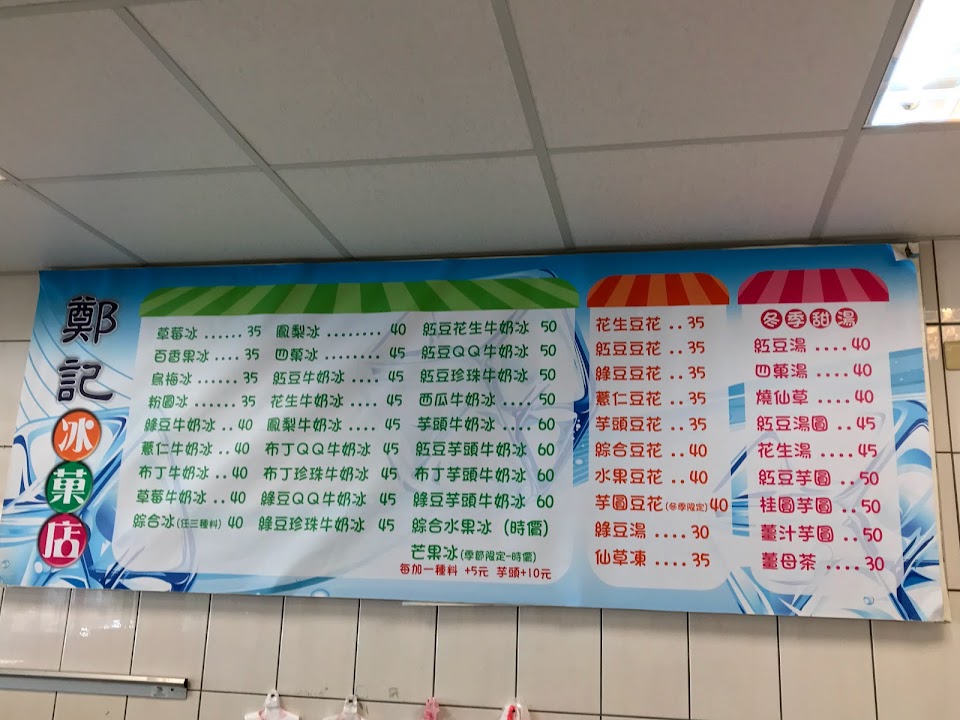 鄭記冰菓店
草莓冰......35
百香果冰....35
烏梅冰......35
粉圓冰.......35
綠豆牛奶冰..40
薏仁牛奶冰..40
布丁牛奶冰..40
草莓牛奶冰..40
綜合冰(任三種料) 40
鳳梨冰........40
四菓冰........45
紅豆牛奶冰....45
花生牛奶冰....45
鳳梨牛奶冰....45
布丁QQ牛奶冰 45
布丁珍珠牛奶冰 45
綠豆QQ牛奶冰 45
綠豆珍珠牛奶冰 45
紅豆花生牛奶冰 50
紅豆QQ牛奶冰 50
紅豆珍珠牛奶冰 50
西瓜牛奶冰....50
芋頭牛奶冰....60
紅豆芋頭牛奶冰 60
布丁芋頭牛奶冰 60
綠豆芋頭牛奶冰 60
綜合水果冰 (時價)
芒果冰(季節限定-時價)
每加一種料 +5元 芋頭+10元
花生豆花..35
紅豆豆花..35
綠豆豆花..35
薏仁豆花..35
芋頭豆花..35
綜合豆花..40
水果豆花..40
芋圓豆花(冬季限定)40
綠豆湯....30
仙草凍....35
冬季甜湯
紅豆湯....40
四菓湯....40
燒仙草....40
紅豆湯圓..45
花生湯....45
紅豆芋圓..50
桂圓芋圓..50
薑汁芋圓..50
薑母茶....30